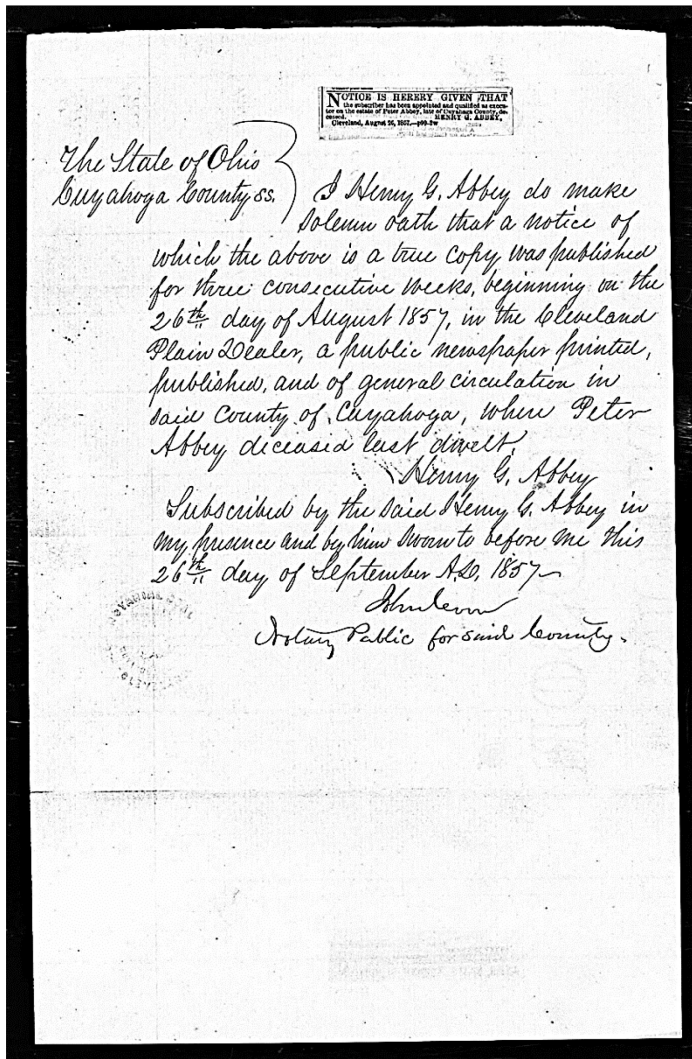 NOTICE IS HEREBY GIVEN THAT
the subscriber has been appointed and qualified as execu-
tor on the estate of Peter Abbey, late of Cuyahoga County, de-
ceased. HENRY G. ABBEY,
Cleveland, August 26, 1857.
The State of Ohio
Cuyahoga County ss.
I Henry G. Abbey do make
solemn oath that a notice of
which the above is a true copy, was published
for three consecutive weeks, beginning on the
26th day of August 1857, in the Cleveland
Plain Dealer, a public newspaper printed,
published, and of general circulation in
said County of Cuyahoga, where Peter
Abbey deceased last dwelt.
Henry G. Abbey
Subscribed by the said Henry G. Abbey in
my presence and by him sworn to before me this
26th day of September A.D. 1857
John
Notary Public for said County.